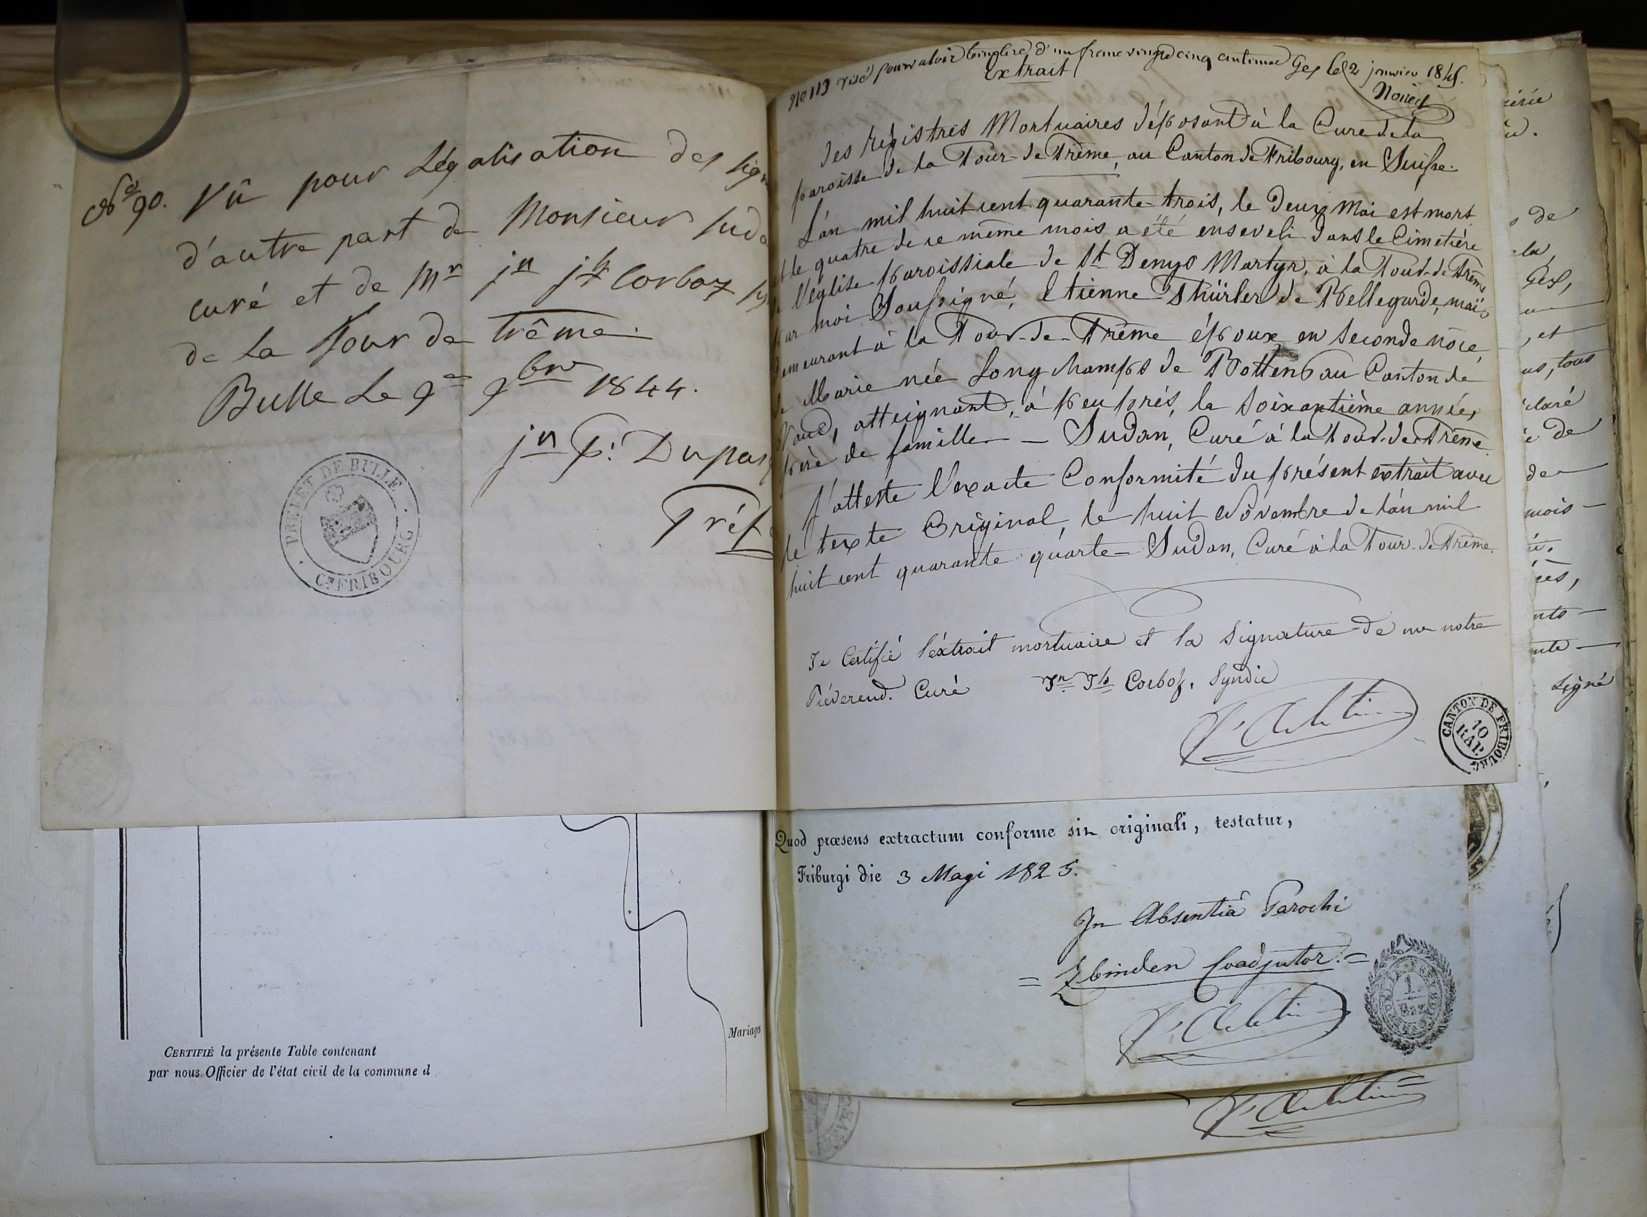 No 90. Vû pour Légalisation des sign
d'autre part de Monsieur Suda
curé et de Mr jn jh Corboz sy
de la Tour de trême.
Bulle Le 9e 9bre 1844.
jn
Préf
PREFET DE BULLE
Cn FRIBOURG
visé pour valoir timbre d'un franc vingt cinq centimes Gex le 2 janvier 1845.
Extrait
des régistres Mortuaires déposant à la Cure de la
paroisse de la Tour-de-Trême, au Canton de Fribourg, en Suisse.
L'an mil huit cent quarante trois, le deux Mai est mort
et le quatre de ce même mois a été enseveli dans le Cimetière
de l'église paroissiale de St Denys Martyr, à la Tour-de-Trême
par moi Soussigné, Etienne Thürler de Bellegarde, mais
demeurant à la Tour-de-Trême époux en seconde nôce,
de Marie née Longchamps de Bottens au Canton de
Vaud, atteignant, à peu prés, la soixantième année,
père de famille — Sudan, Curé à la Tour-de-Trême
J'atteste l'exacte Conformité du présent extrait avec
le texte Original, le huit Novembre de l'an mil
huit cent quarante quarte — Sudan, Curé à la Tour-de-Trême.
Je Certifié l'éxtrait mortuaire et la Signature de notre
Réverend. Curé Jn Jh Corboz, Syndic
CANTON DE FRIBOURG
10
RAP.
Quod præsens extractum conforme sit originali, testatur,
Friburgi die 3 Maji 1825.
In Absentiâ Parochi
= Zbinden Coadjutor. =
Mariages
CERTIFIÉ la présente Table contenant
par nous Officier de l'état civil de la commune d
de
Gex,
et
tous
de
de
mois
signé